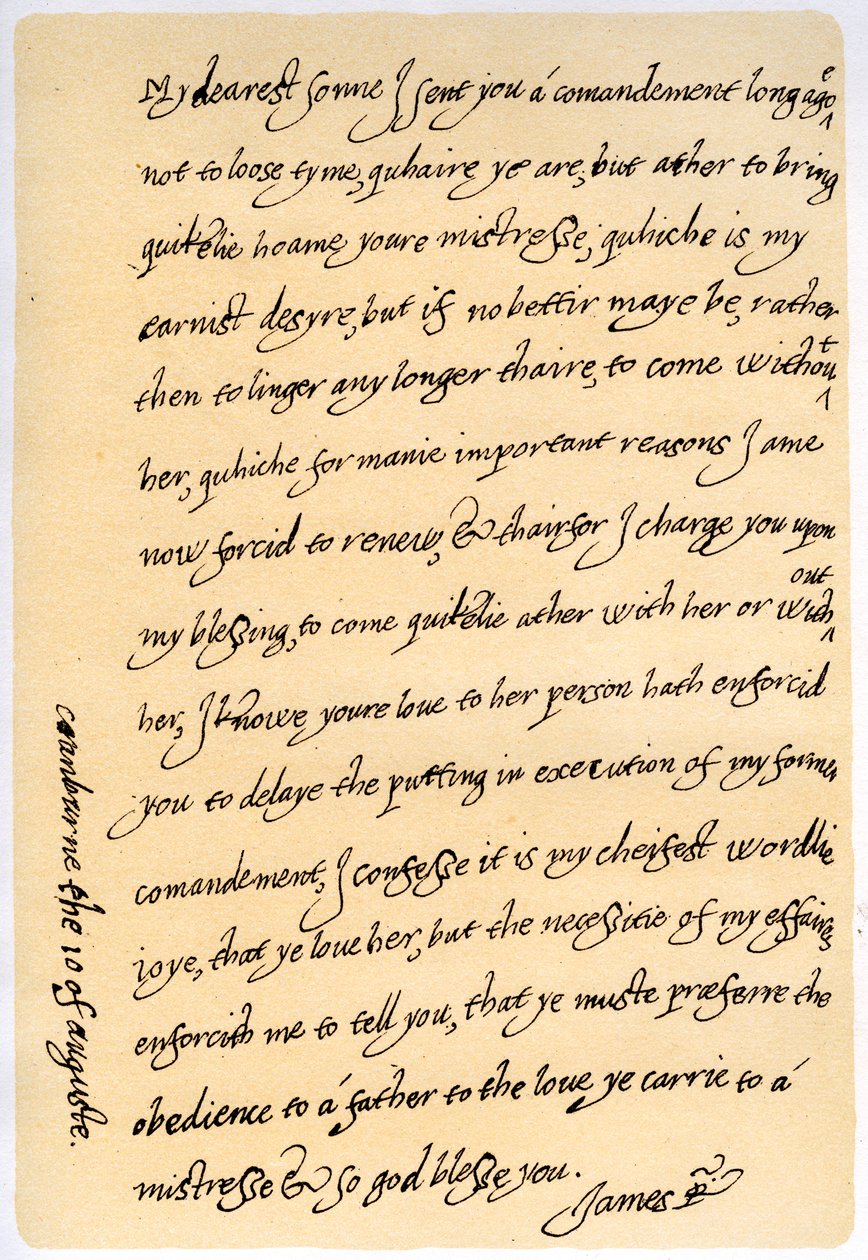 My dearest sonne I sent you á comandement long agoe
not to loose tyme, quhaire ye are, but ather to bring
quikelie hoame youre mistresse, quhiche is my
earnist desyre, but if no bettir maye be, rather
then to linger any longer thaire, to come without
her, quhiche for manie important reasons I ame
now forcid to renew, & thairfor I charge you upon
my blessing, to come quikelie ather with her or without
her, I knowe youre love to her person hath enforcid
you to delaye the putting in execution of my former
comandement, I confesse it is my cheifest wordlie
ioye, that ye love her, but the necessitie of my effaires
enforcith me to tell you, that ye muste præferre the
obedience to á father to the love ye carrie to á
mistresse & so god blesse you.
James R.
cranburne the 10 of auguste.